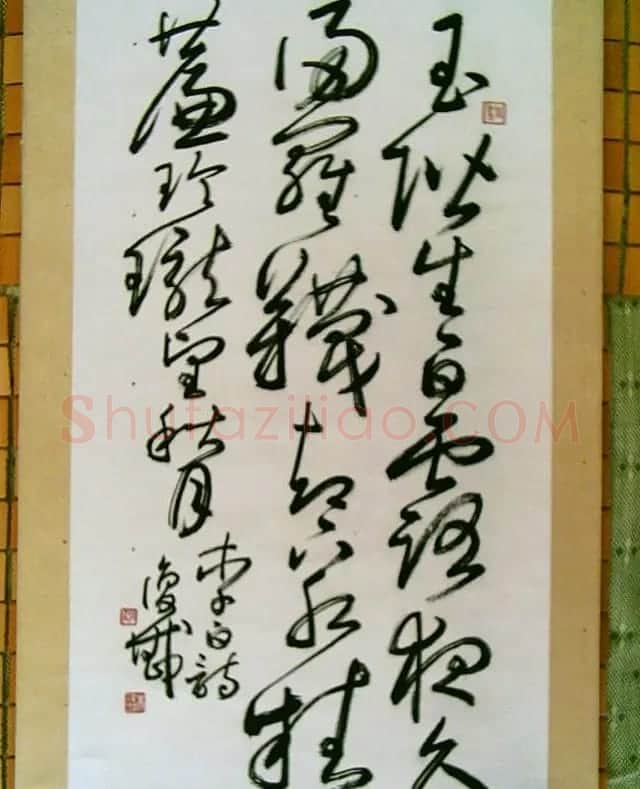 玉階生白露夜久
侵羅韈却下水精
簾玲瓏望秋月
李白詩
復戡
Shufaziliao.COM